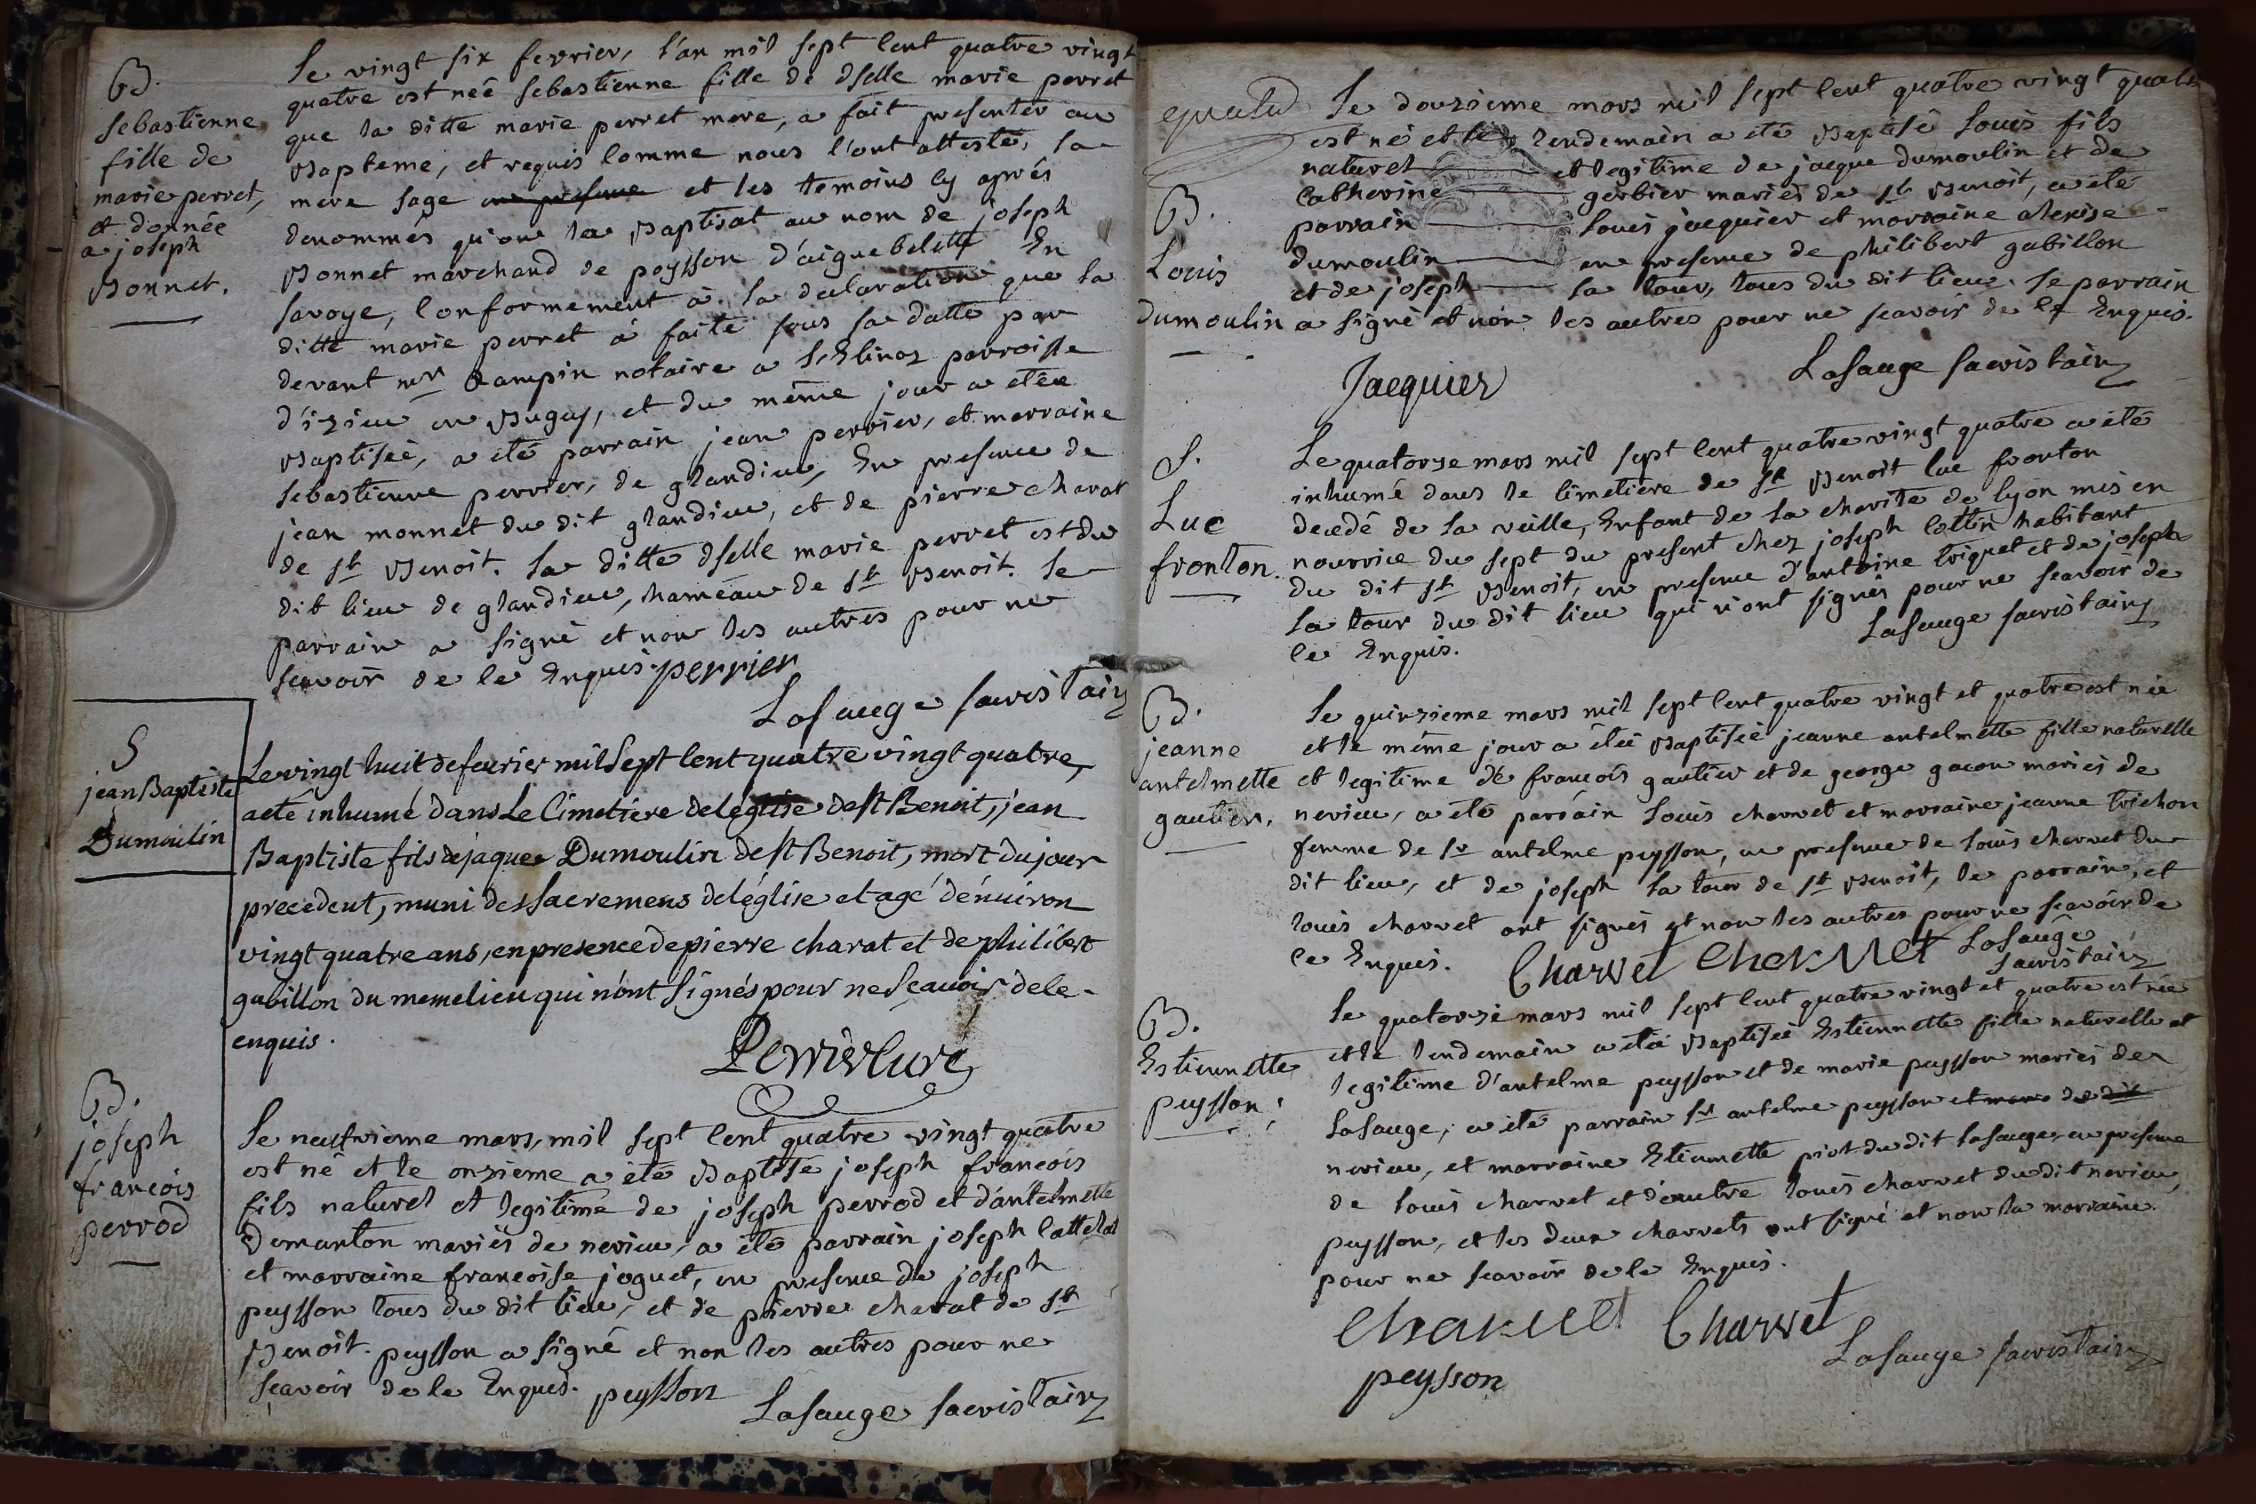 B.
Sebastienne
fille de
marie perret,
et donnée
a joseph
Bonnet.
Le vingt six fevrier, l'an mil sept cent quatre vingt
quatre est neé sebastienne fille de dselle marie perret
que la ditte marie perret mere, a fait presenter au
Bapteme, et requis comme nous l'ont attesté, sa
mere sage en presence et les temoins cy aprés
denommés qu'on la Baptisat au nom de joseph
Bonnet marchand de poysson d'aiguebelette En
savoye, conformement à la declaration que la
ditte marie perret á faite sous sa datte par
devant mr Rampin notaire a St Elinoz parroisse
d'izieu en Bugey, et du même jour a etée
Baptiseé, a eté parrain jean perrier, et marraine
sebastienne perrier, de glandieu, En presence de
jean monnet du dit glandieu, et de pierre charat
de st Benoit. La ditte dselle marie perret est du
dit lieu de glandieu, haméau de st Benoit. Le
parrain a signé et non les autres pour ne
scavoir de ce Enquis perrier
Lasauge sacristain
S
jean Baptiste
Dumoulin
Le vingt huit de fevrier mil Sept Cent quatre vingt quatre,
a eté inhumé dans Le Cimetiere de l'église de st Benoit, jean
Baptiste fils de jaques Dumoulin de st Benoit, mort du jour
precedent, muni des sacremens de l'église et agé d'énuiron
vingt quatre ans, en presence de pierre charat et de philibert
gabillon du meme lieu qui n'ont signés pour ne sçavoir de ce
enquis.
Perrier Curé
B.
joseph
francois
perrod
Le neufvieme mars, mil sept cent quatre vingt quatre
est né et le onzieme a été Baptisé joseph francois
fils naturel et legitime de joseph perrod et d'antelmette
Demanton mariés de nerieu, a eté parrain joseph Cattelat
et marraine francoise joguet, en presence de joseph
peysson tous du dit lieu, et de pierre charat de st
Benoit. peysson a signé et non les autres pour ne
scavoir de ce Enquis. peysson Lasauge sacristain
B.
Louis
Dumoulin
Le douzieme mars mil sept cent quatre vingt quatre
est né et le lendemain a eté Baptisé Louis fils
naturel et legitime de jacque dumoulin et de
Catherine gerbier mariés de st Benoit, a eté
parrain Louis jacquier et marraine
dumoulin en presence de philibert gabillon
et de joseph la tour, tous du dit lieu. Le parrain
a signé et non les autres pour ne scavoir de ce Enquis.
Jacquier Lasauge sacristain
S.
Luc
fronton.
Le quatorze mars mil sept cent quatre vingt quatre a eté
inhumé dans le cimetiére de st Benoit luc fronton
decedé de la veille, Enfant de la charité de lyon mis en
nourrice du sept du present chez joseph cottin habitant
du dit st Benoit, en presence d'antoine triquet et de joseph
La tour du dit lieu qui n'ont signés pour ne scavoir de
ce Enquis. Lasauge sacristain
B.
jeanne
antelmette
gautier.
Le quinzieme mars mil sept cent quatre vingt et quatre est née
et le même jour a étée Baptiseé jeanne antelmette fille naturelle
et legitime de francois gautier et de george gacon mariés de
nerieu, a eté parrain Louis charvet et marraine jeanne trichon
femme de sr antelme peysson, en presence de Louis charvet du
dit lieu, et de joseph La tour de st Benoit, le parrain, et
louis charvet ont signés et non les autres pour ne scavoir de
ce Enquis. Charvet Charvet Lasauge
sacristain
B.
Estiennette
peysson.
Le quatorzé mars mil sept cent quatre vingt et quatre est née
et le lendemain a etée Baptiseé Estiennette fille naturelle et
legitime d'antelme peysson et de marie peysson mariés de
Lasauge, a été parrain sr antelme peysson et marr du dit
nerieu, et marraine Etiennette piot du dit Lasauge, en presence
de Louis charvet et d'eautre louis charvet du dit nerieu,
peysson, et les deux charvets ont signé et non la marraine
pour ne scavoir de ce Enquis.
Charvet Charvet
peysson Lasauge sacristain